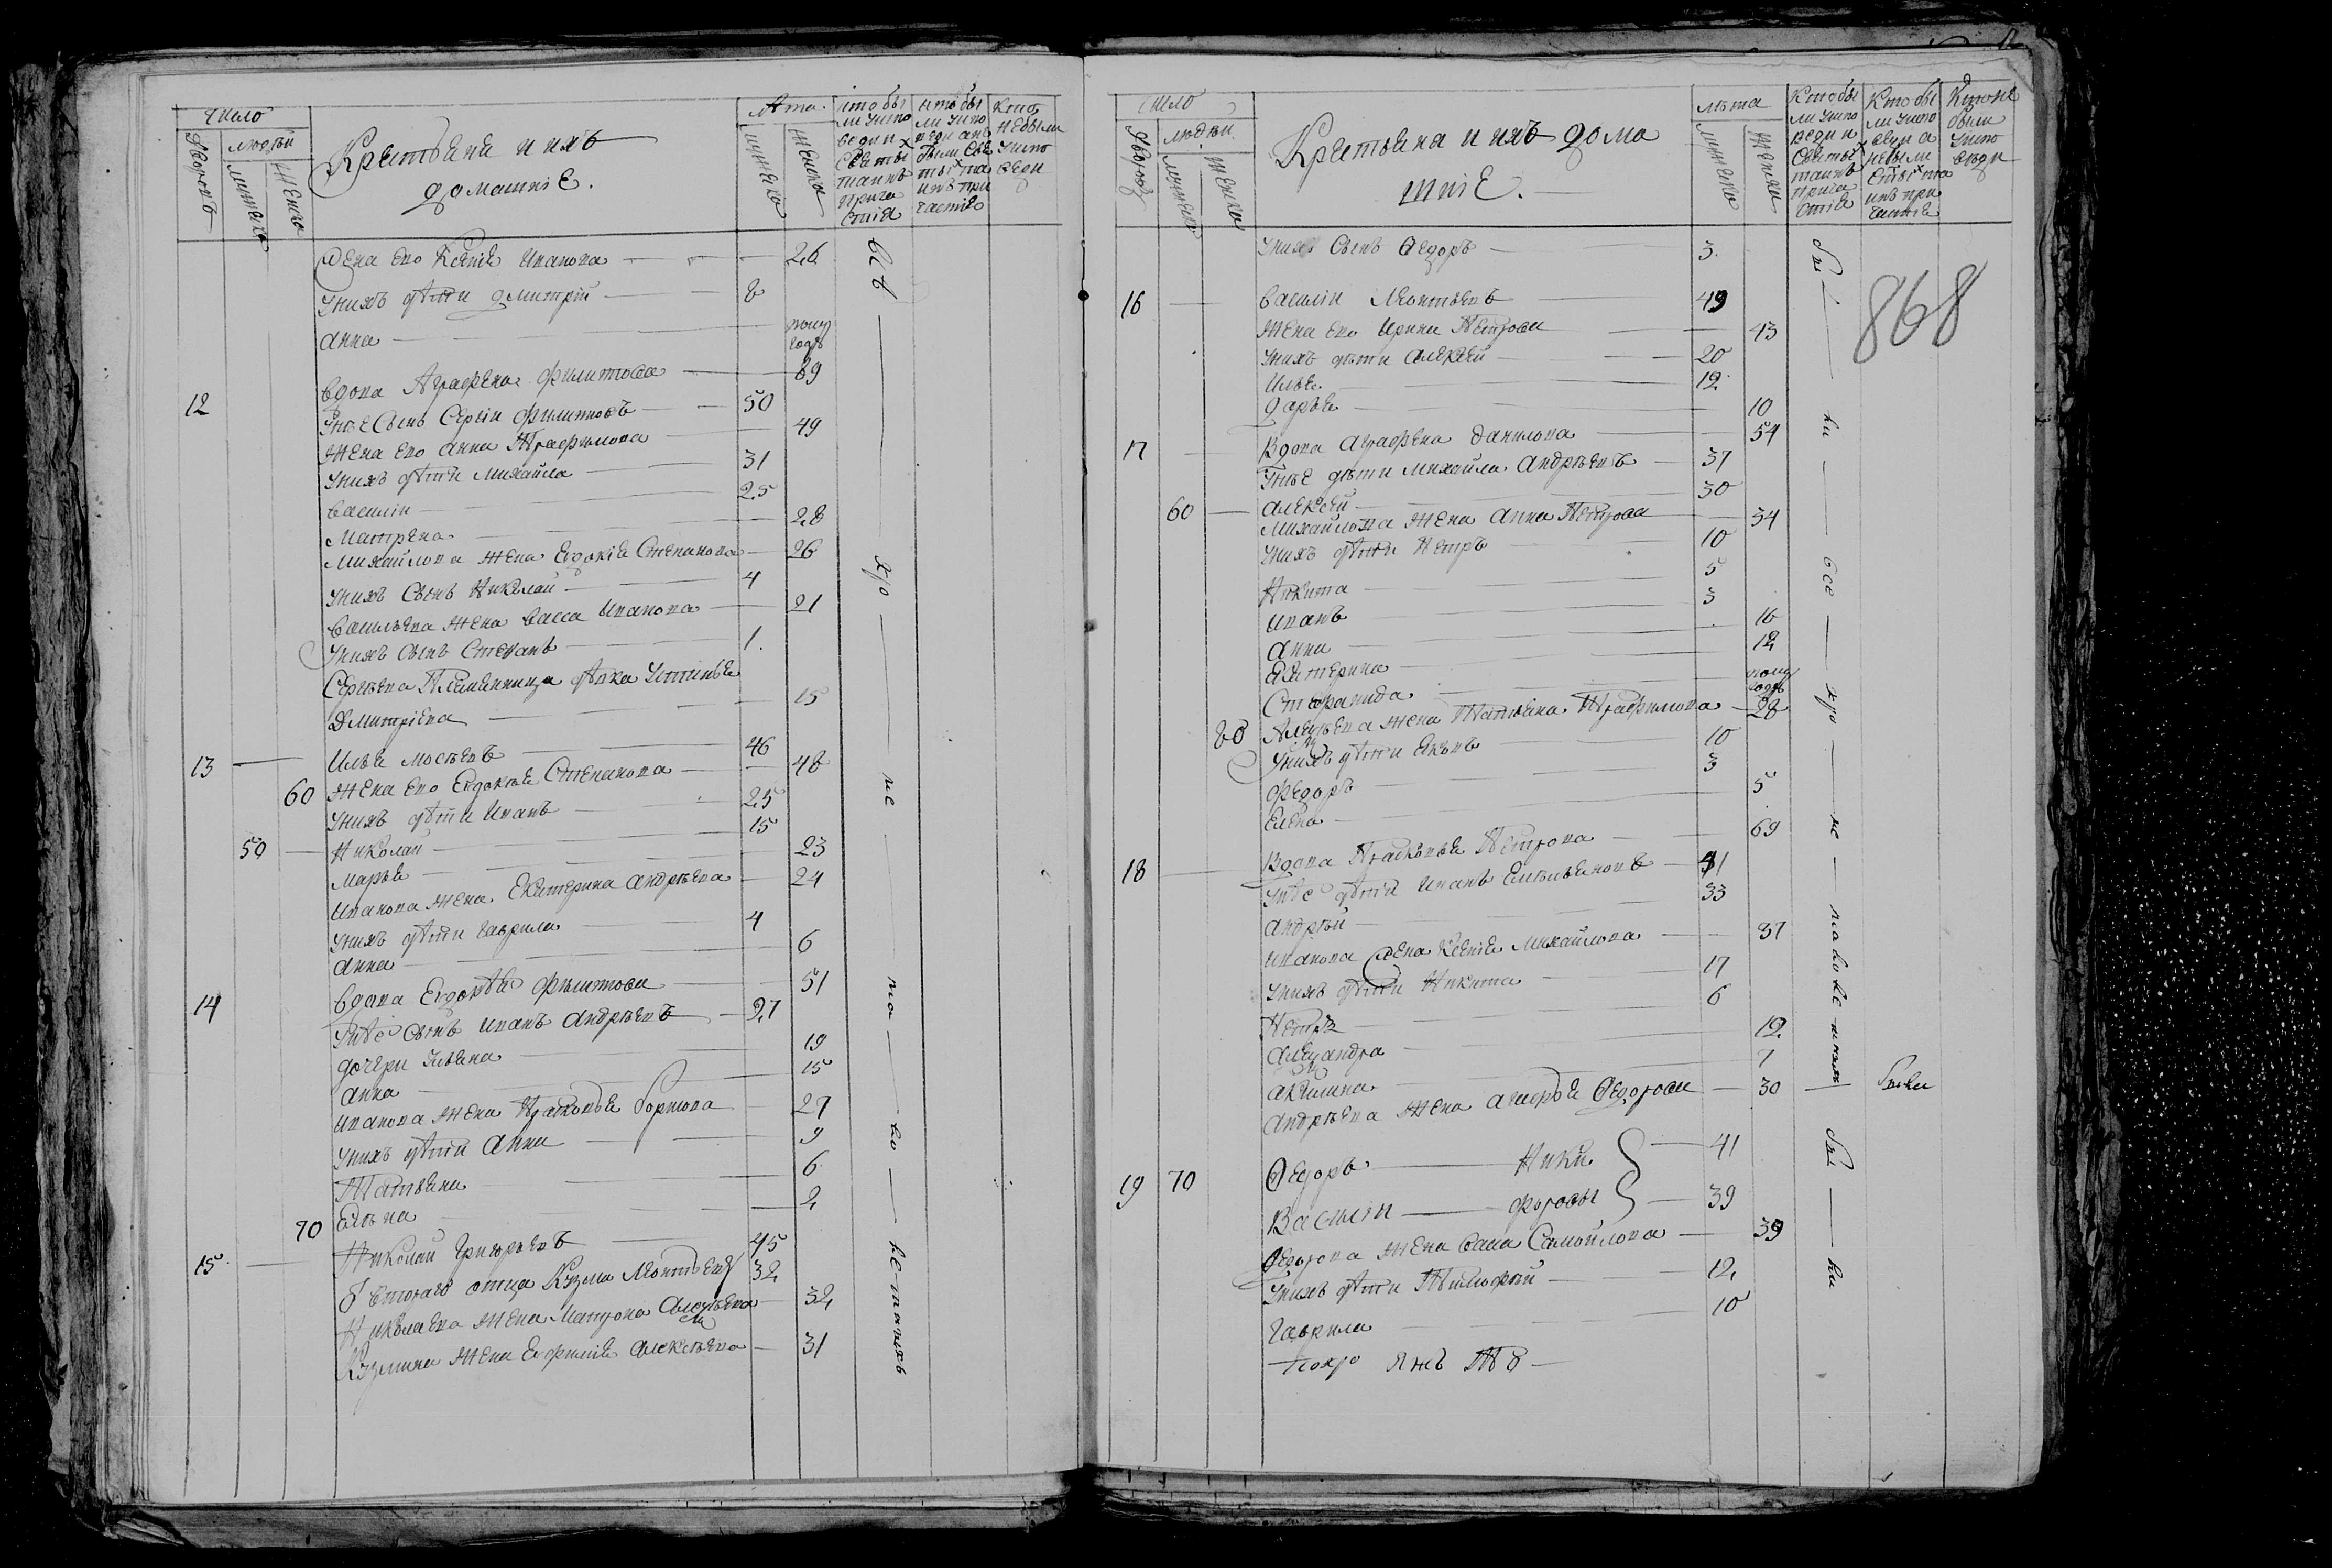 Число
Дворовъ
людей
мужеска
женска
Крестьяне и ихъ
домашніе.
Лѣта.
мужеска
женска
кто бы
ли у испо
веди и
Святы
таинъ
прича
стія
кто бы
ли у испо
веди а не
были свя
тыхъ та
инъ при
частія
Кто
не были
у испо
веди
Жена его Ксенія Иванова 26
У нихъ дѣти Дмитрій 8
Анна полу
года
12 Вдова Аграфена Филипова 89
У нее сынъ Сергій Филиповъ 50
Жена его Анна Трафимова 49
У нихъ дѣти Михайла 31
Василій 25
Матрена 28
Михайлова жена Евдокія Степанова 26
У нихъ сынъ Николай 4
Васильева жена Васса Иванова 21
У нихъ сынъ Степанъ 1.
Сергѣева племянница дѣвка Устинья
Дмитріева 15
13 Илья Мосѣевъ 46
60 Жена его Евдокія Степанова 48
У нихъ дѣти Иванъ 25
50 Николай 15
Марья 23
Иванова жена Екатерина Андрѣева 24
У нихъ дѣти Гаврила 4
Анна 6
14 Вдова Евдокія Филипова 51
У нее сынъ Иванъ Андрѣевъ 27
дочери Ульяна 19
Анна 15
Иванова жена Прасковья 27
У нихъ дѣти Анна 9
Татьяна 6
70 Елѣна 2
15 Николай Григорьевъ 45
втораго отца Кузма Леонтьевъ 32
Николаева жена Матрона Алексѣева 32
Кузмина жена Евфимія Алексѣева 31
всѣ
не
Число
Дворовъ
людѣй
мужеска
женска
Крестьяна и ихъ дома
шніе.
лѣта
мужеска
женска
Кто бы
ли у испо
веди и
святы
таинъ
прича
стія
Кто бы
ли у испо
веди а
не были
святы та
инъ при
частія
Кто не
были
у испо
веди
868
У нихъ сынъ Федоръ 3.
16 Василій Леонтьевъ 49
Жена его Ирина Петрова 43
У нихъ дѣти Алексей 20
Илья 12
Дарья 10
17 Вдова Аграфена Данилова 54
У нее дѣти Михайла Андрѣевъ 37
60 Алексей 30
Михайлова жена Анна Петрова 34
У нихъ дѣти Петръ 10
Никита 5
Иванъ 3
Анна 16
Екатерина 12
Стефанида полу
года
80 Алексѣева жена Татьяна Трафимова 28
У нихъ дѣти Яковъ 10
Федоръ 3
Елена 5
18 Вдова Прасковья Петрова 69
У нее дѣти Иванъ Емельяновъ 41
Андрѣй 33
Иванова жена Ксенія Михайлова 37
У нихъ дѣти Никита 17
Петръ 6
Александра 12
Акилина 7
Андрѣева жена Федорова 30 были
19 70 Федоръ Ники 41
Василій форовы 39
Федорова жена Самойлова 39
У нихъ дѣти Тимофей 12
Гаврила 10